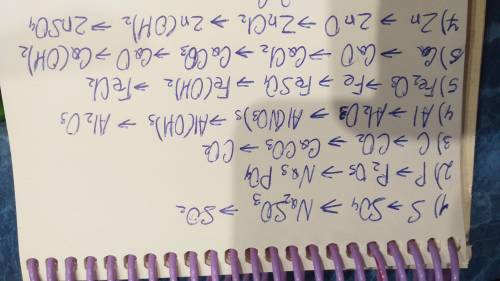 1) S → SO4 → Na2SO3 → SO2
2) P → P2O5 → Na3PO4
3) C → CO2 → CaCO3 → CO2
4) Al → Al2O3 → Al(NO3)3 → Al(OH)3 → Al2O3
5) Fe2O3 → Fe → FeSO4 → Fe(OH)2 → FeCl2
6) Ca → CaO → CaCl2 → CaCO3 → CaO → Ca(OH)2
7) Zn → ZnO → ZnCl2 → Zn(OH)2 → ZnSO4